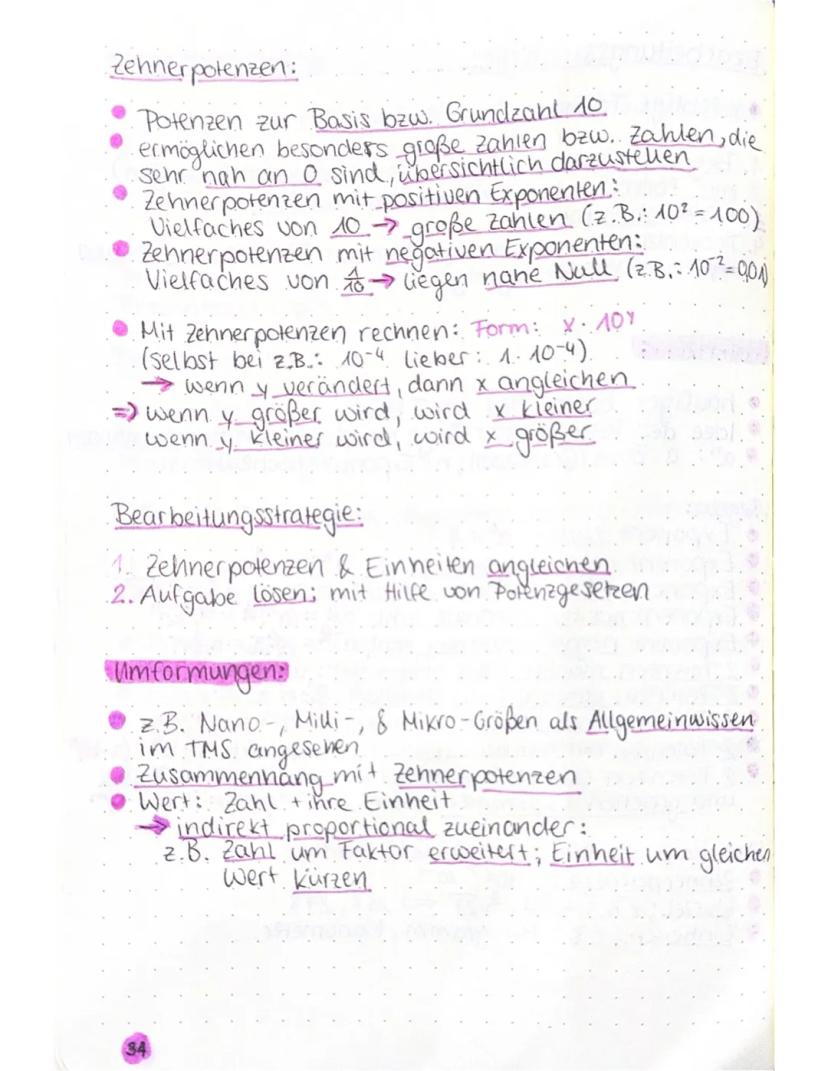 Zehnerpotenzen:
• Potenzen zur Basis bzw. Grundzahl 10
• ermöglichen besonders große Zahlen bzw. Zahlen, die
sehr nah an 0 sind, übersichtlich darzustellen
• Zehnerpotenzen mit positiven Exponenten:
Vielfaches von 10 → große Zahlen (z.B.: 10² = 100)
• Zehnerpotenzen mit negativen Exponenten:
Vielfaches von 1/10 → liegen nahe Null (z.B.: 10⁻² = 0,01)
• Mit Zehnerpotenzen rechnen: Form: x · 10ʸ
(selbst bei z.B.: 10⁻⁴ lieber: 1 · 10⁻⁴)
→ wenn y verändert, dann x angleichen
⇒ wenn y größer wird, wird x kleiner
wenn y kleiner wird, wird x größer
Bearbeitungsstrategie:
1. Zehnerpotenzen & Einheiten angleichen
2. Aufgabe lösen: mit Hilfe von Potenzgesetzen
Umformungen:
• z.B. Nano-, Milli-, & Mikro-Größen als Allgemeinwissen
im TMS angesehen
• Zusammenhang mit Zehnerpotenzen
• Wert: Zahl + ihre Einheit
→ indirekt proportional zueinander:
z.B. Zahl um Faktor erweitert; Einheit um gleichen
Wert kürzen
34